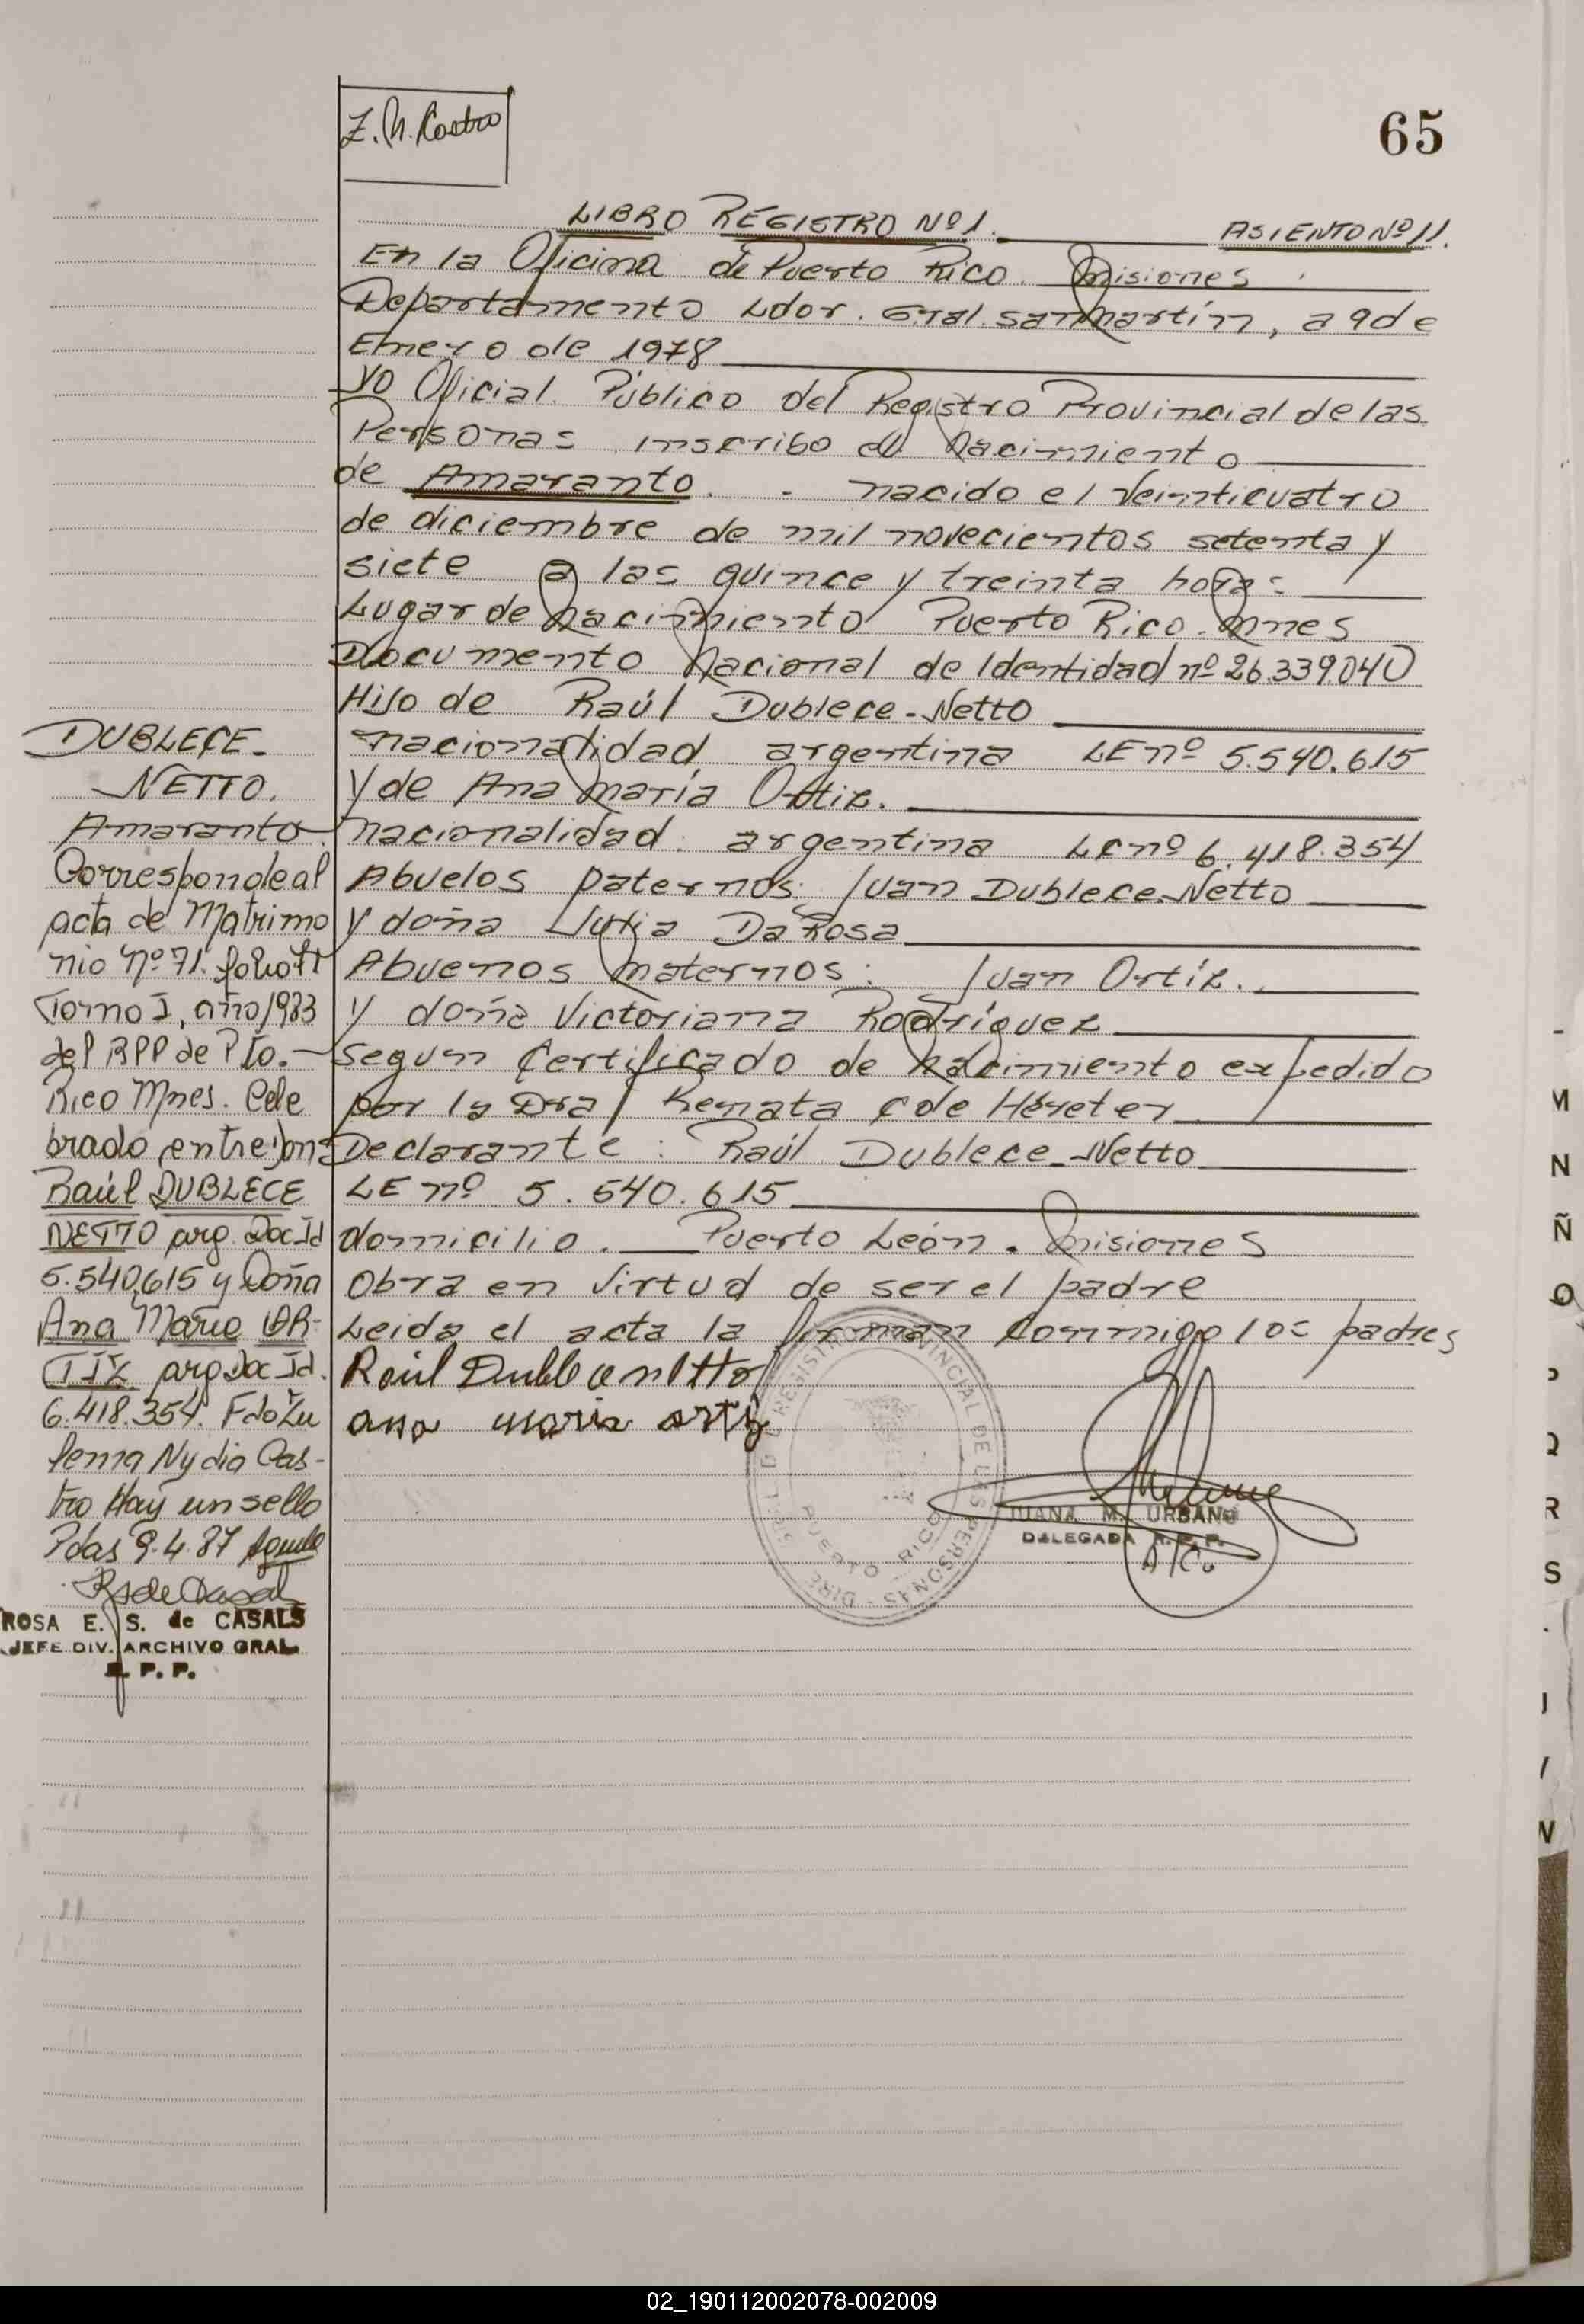 Z. N. Castro
65
LIBRO REGISTRO Nº 1. ASIENTO Nº 11.
En la Oficina de Puerto Rico. Misiones.
Departamento Ldor. Gral. San Martín, a 9 de
Enero de 1978
yo Oficial Público del Registro Provincial de las
Personas, inscribo el Nacimiento
de Amaranto. - nacido el Veinticuatro
de diciembre de mil novecientos setenta y
siete a las quince y treinta horas
Lugar de Nacimiento Puerto Rico. Mnes
Documento Nacional de Identidad nº 26.339040
Hijo de Raúl Dublece-Netto
nacionalidad argentina LE nº 5.540.615
y de Ana María Ortiz.
nacionalidad. argentina LC nº 6.418.354
Abuelos paternos: Juan Dublece-Netto
y doña Julia Da Rosa
Abuenos maternos: Juan Ortíz.
y doña Victoriana Rodríguez
segun Certificado de Nacimiento expedido
por la Dra Renata C de Héreter
Declarante: Raúl Dublece-Netto
LE nº 5.540.615
domicilio. Puerto León. Misiones
Obra en Virtud de ser el padre
Leida el acta la firman Conmigo los padres
Raúl Dublece netto
ana maria ortiz
DIRECCION REGISTRO PROVINCIAL DE LAS PERSONAS
PUERTO RICO
JUANA M. URBANO
DELEGADA R.P.P.
DUBLECE-
NETTO.
Amaranto.
Corresponde al
acta de Matrimo
nio nº 71. folio 71
Tomo I, año 1983
del RPP de Pto.-
Rico Mnes. Cele
brado entre Don
Raúl DUBLECE
NETTO arg. Doc Id
5.540.615 y Doña
Ana María OR-
TIZ arg Doc Id.
6.418.354. Fdo Zu
lema Nydia Cas-
tro Hay un sello
Pdas 9.4.87
ROSA E. S. de CASALS
JEFE DIV. ARCHIVO GRAL.
R. P. P.
M
N
Ñ
O
P
Q
R
S
02_190112002078-002009